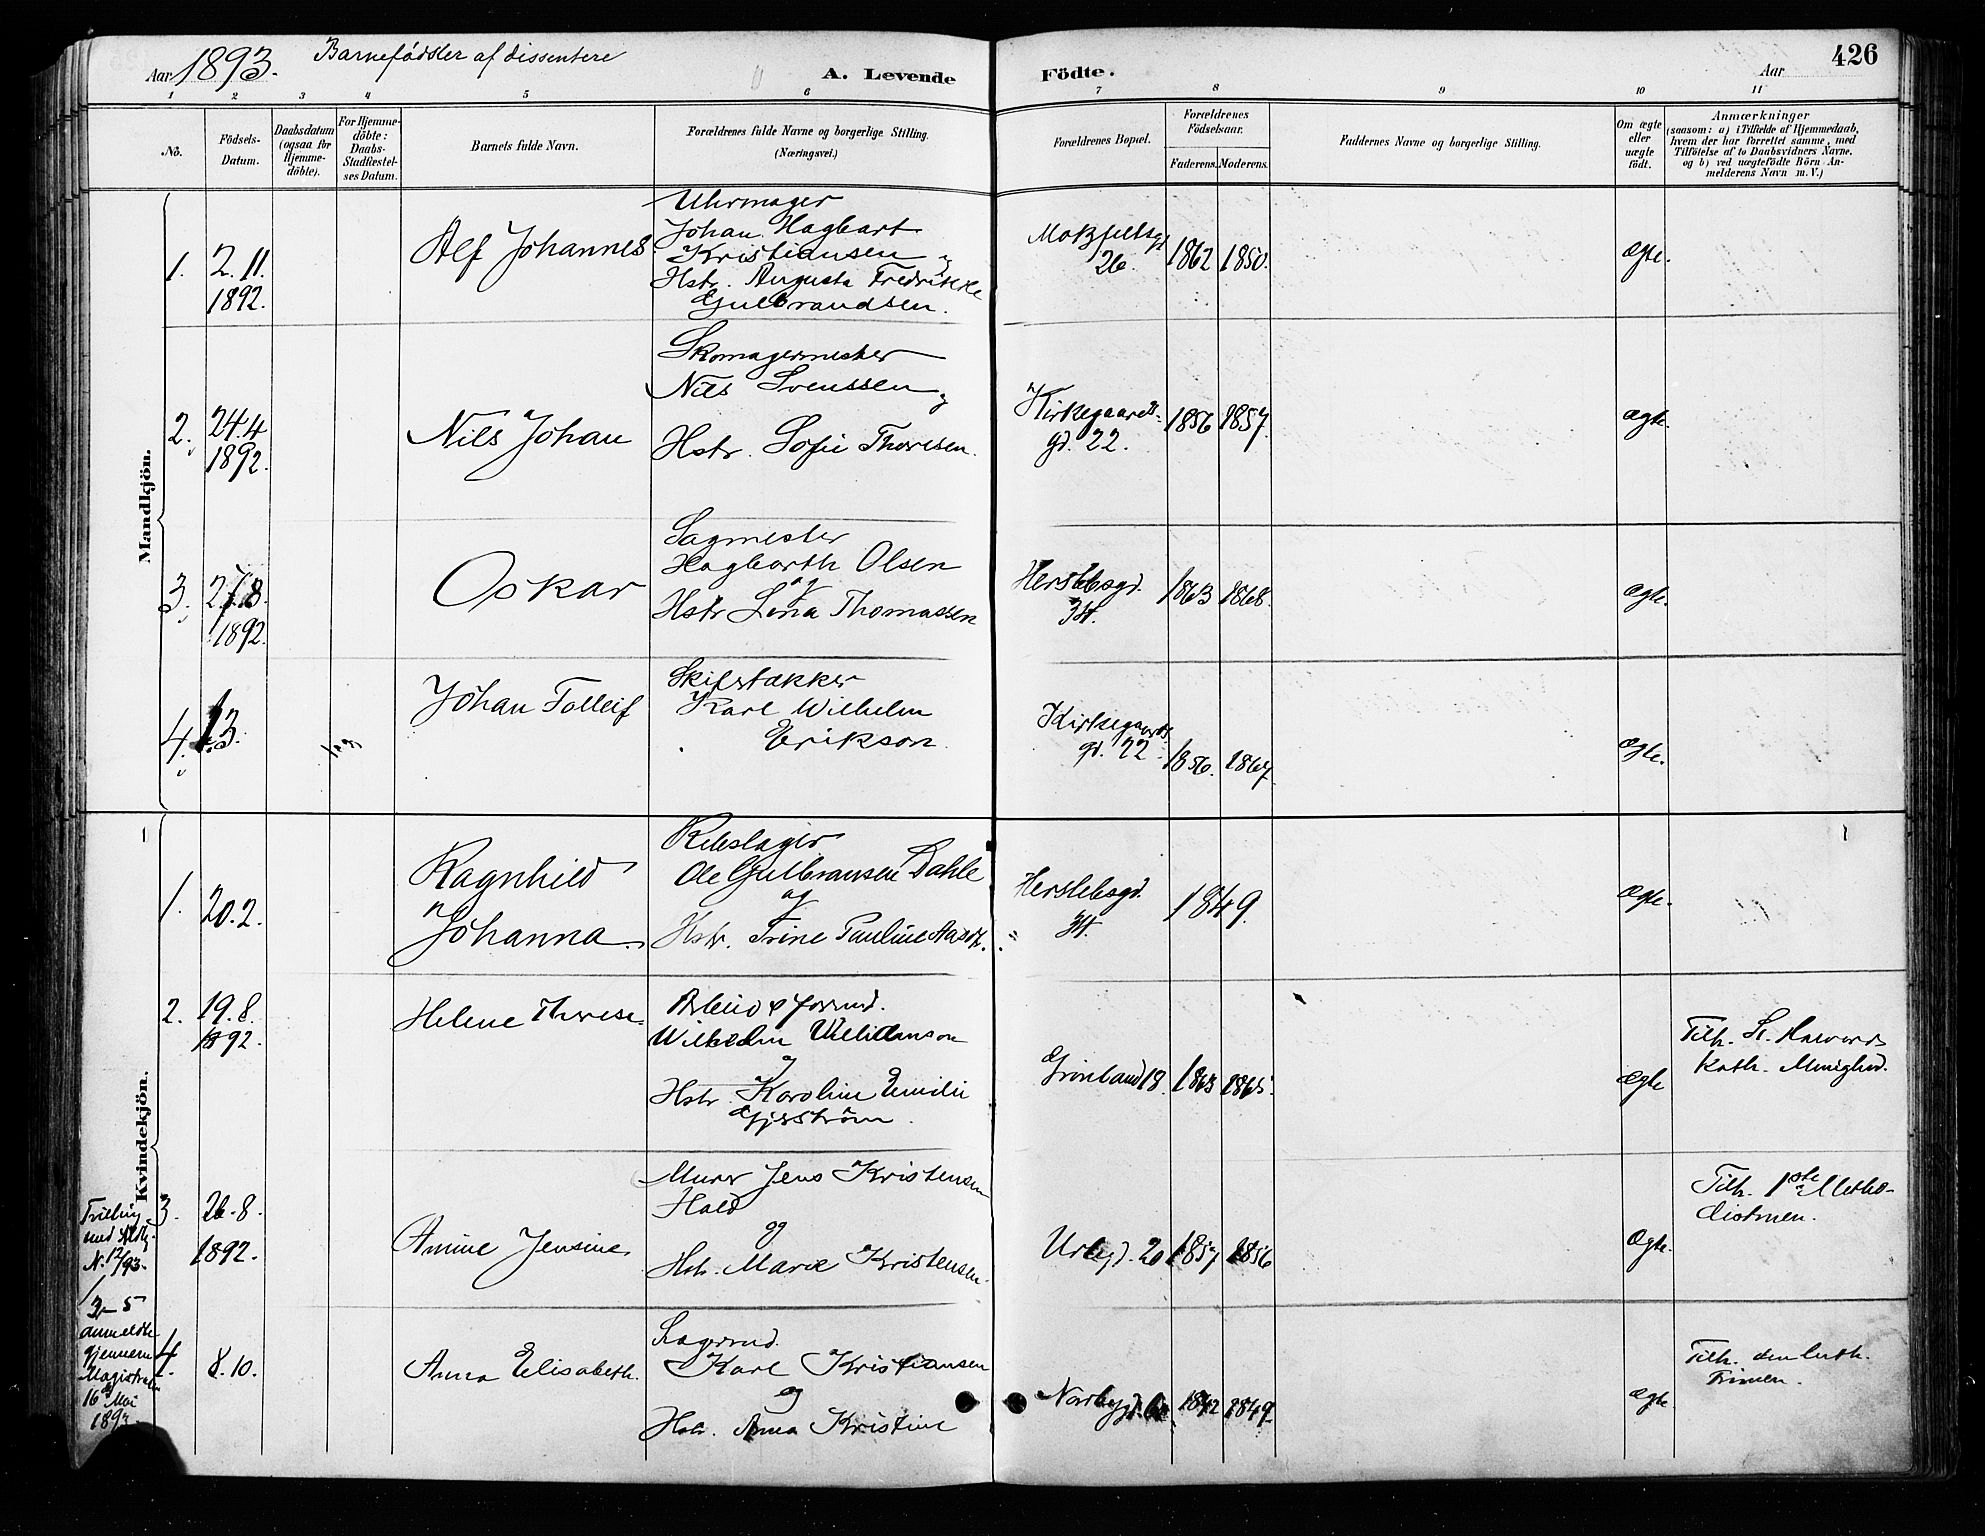 Aar 1893. Barnefødsler af dissentere
A. Levende Födte.
Aar
426
1 2 3 4 5 6 7 8 9 10 11
No.
Födsels-
Datum.
Daabsdatum
(ogsaa for
Hjemme-
döbte).
For Hjemme-
döbte:
Daabs-
Stadfæstel-
ses Datum.
Barnets fulde Navn.
Forældrenes fulde Navne og borgerlige Stilling.
(Næringsvei.)
Forældrenes Bopæl.
Forældrenes
Födselsaar.
Faderens. Moderens.
Faddernes Navne og borgerlige Stilling.
Om ægte
eller
uægte
födt.
Anmærkninger
(saasom: a) i Tilfælde af Hjemmedaab,
hvem der har forrettet samme, med
Tilföielse af to Daabsvidners Navne.
og b) ved uægtefödte Börn An-
melderens Navn m. V.)
Mandkjön.
1.
2.11.
1892.
Alf Johannes
Uhrmager
Johan Hagbart
Kristiansen
Hstr. Augusta Fredrikke
Gulbrandsen.
26.
1862 1850.
Ægte.
2.
24.4
1892.
Nils Johan
Skomagermester
Nils Svenssen
Hstr. Sofie Thoresen.
Kirkegaards-
gd. 22.
1856 1857.
Ægte.
3.
27.8.
1892.
Oskar
Sagmester
Hagbarth Olsen
og
Hstr Lina Thomassen
Herslebsgd.
34.
1863 1868.
Ægte.
4.
Johan Tolleif
Karl Wilhelm
Erikson.
Kirkegaards
gd. 22
1856. 1867.
Ægte.
Kvindekjön.
1.
20.2.
Ragnhild
Johanna.
Rebslager
Ole Gulbransen Dahle
og
Hstr. Trine Pauline
Herslebsgd.
34.
1849.
Ægte.
2.
19.8.
1892.
Helene Therese
Wilhelm
og
Hstr. Karoline Emilie
Grønland 18.
1863 1865.
Ægte
Tilh. St. Halvards
Kath. Menighed.
3.
26.8.
1892.
Amine Jensine
Murer Jens Kristensen
Hald
og
Hstr. Marie Kristensen.
Urtegd. 20
1857 1856
Ægte.
Tilh. 1ste Metho-
distmen.
Tvilling
med
N. 12/93.
2-5
anmeldte
gjennem
Magistraten
16 Mai
1893
4.
8.10.
Anna Elisabeth.
Karl Kristiansen
og
Hstr. Anna Kristine
Norbygd.
1842 1849.
Ægte
Tilh. den luth.
Frimen.